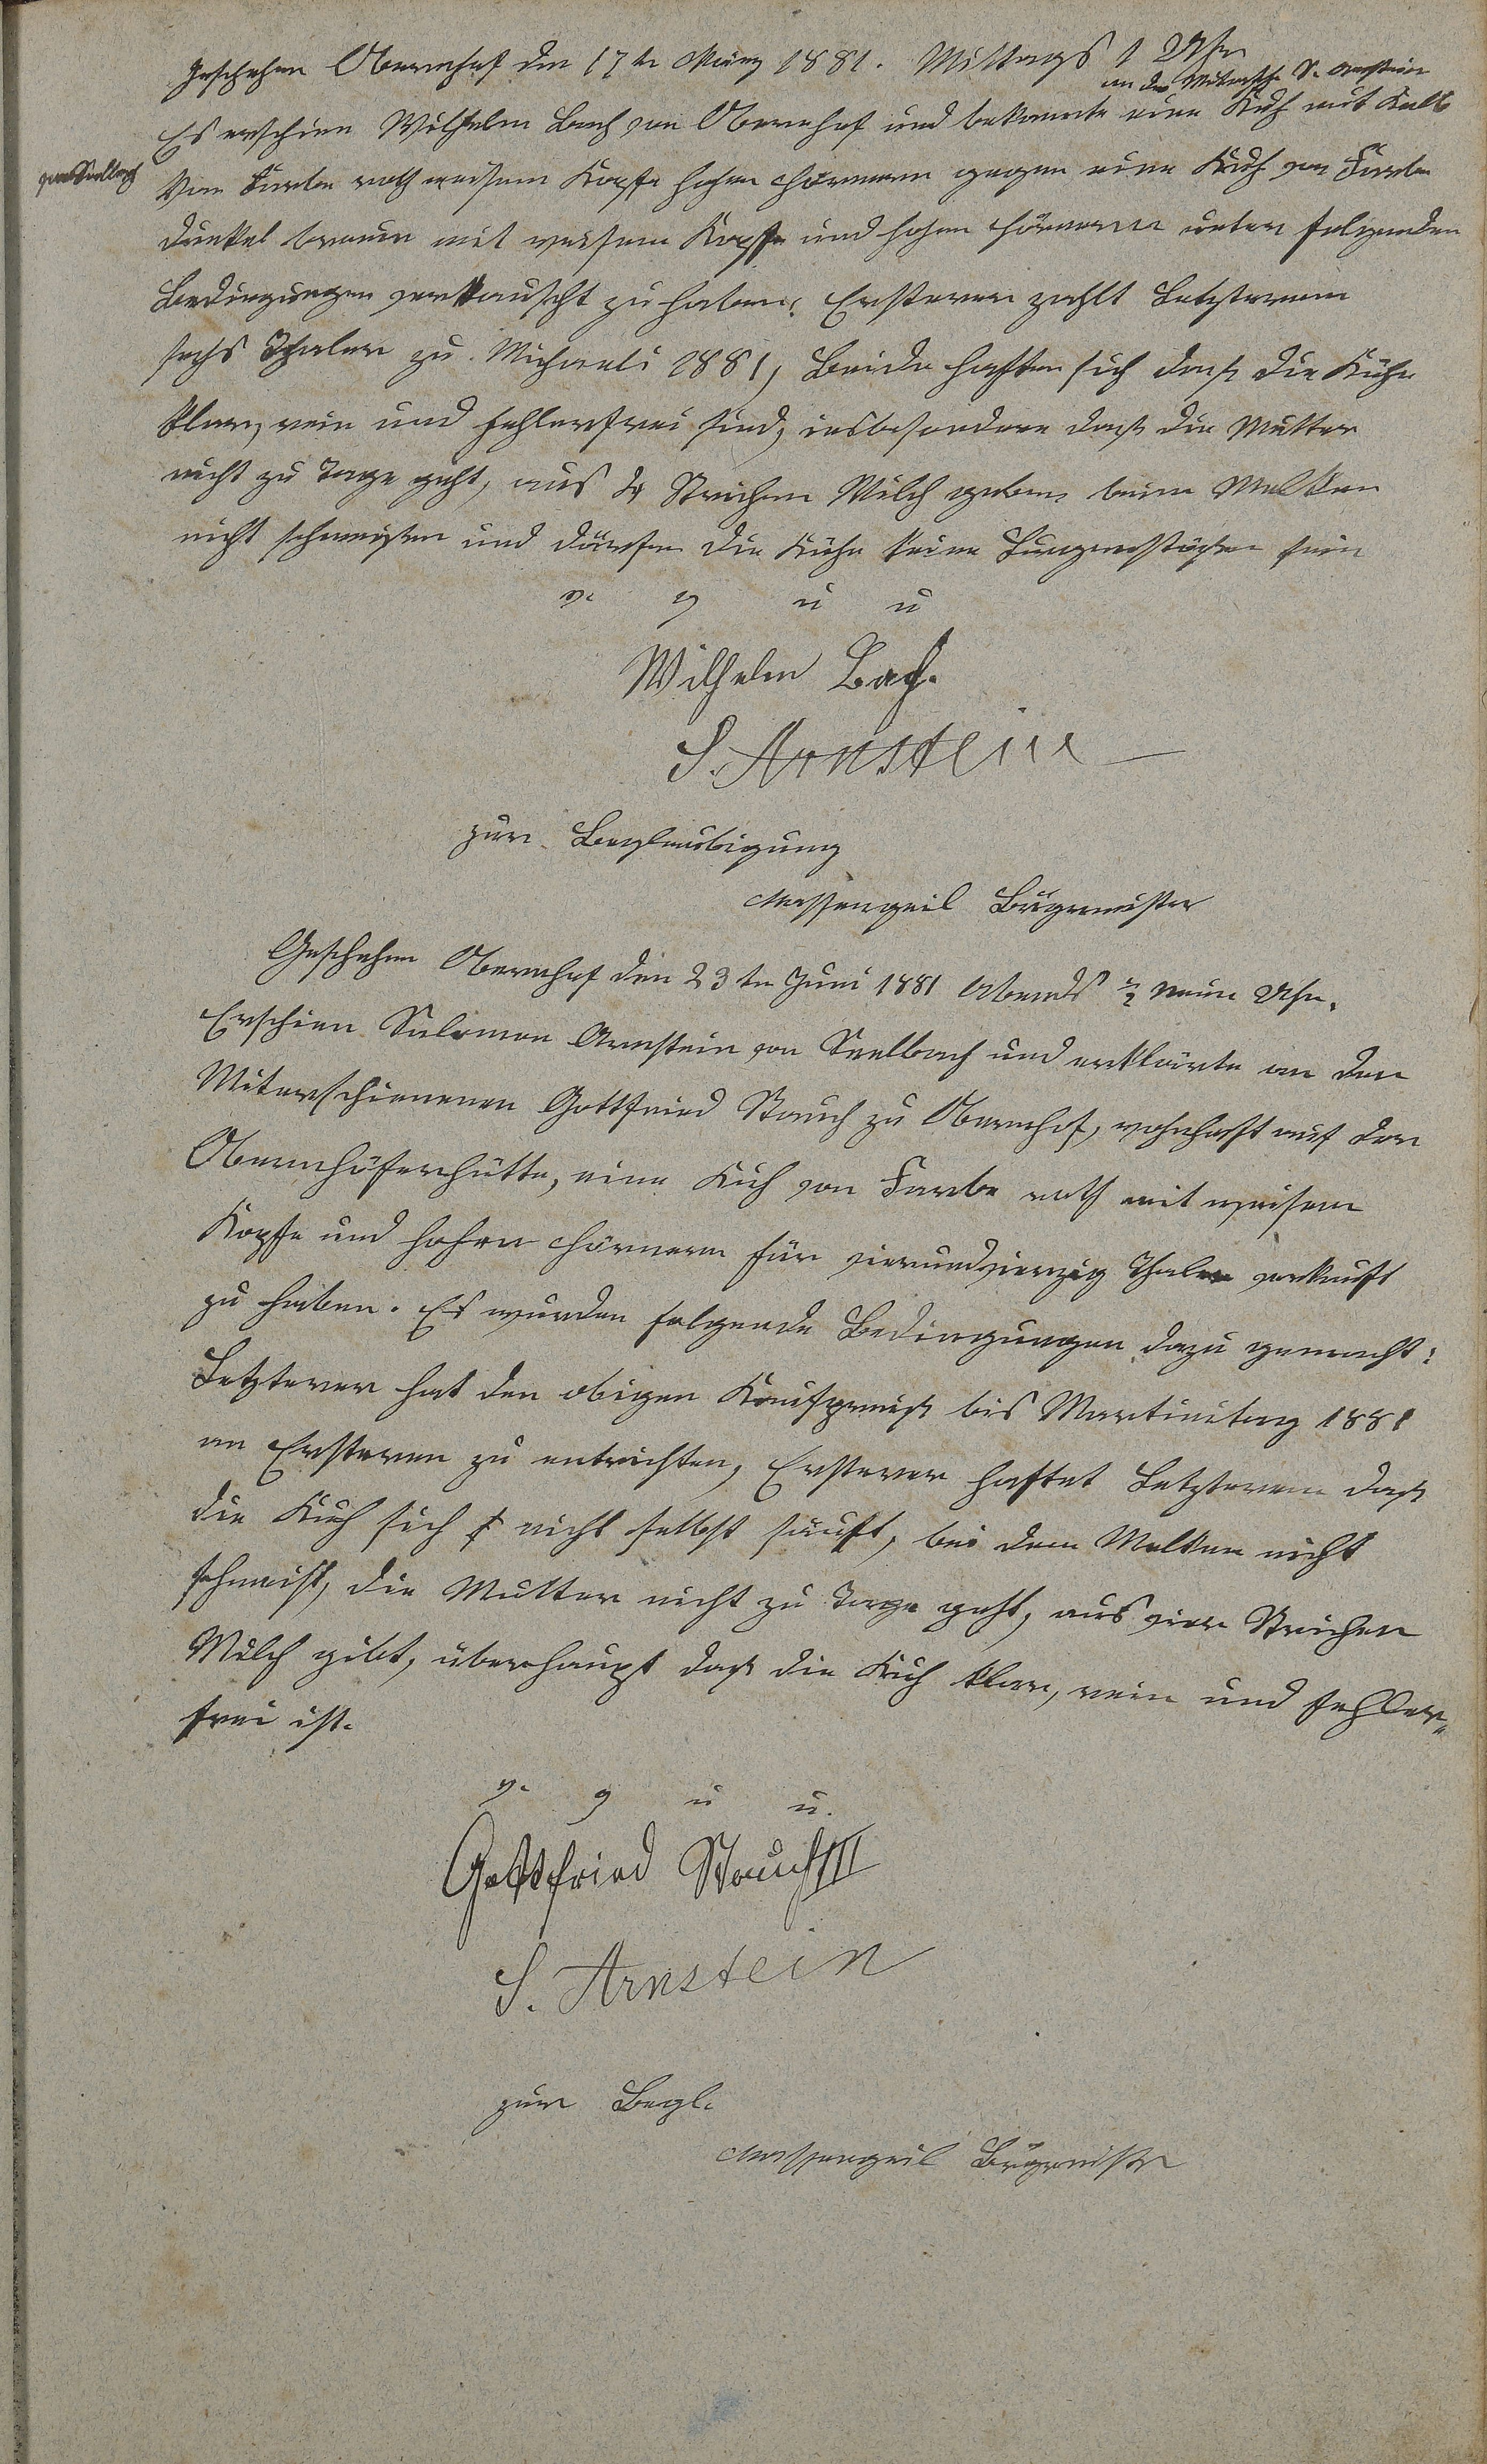 Geschehen Obernhof den 17ten März 1881. Mittags 1 Uhr
an den Miterschie S. Arnstein
Es erschien Wilhelm Bach von Obernhof und bekannte eine Kuh mit Kalb
von Seelbach
Von Farbe roth weisem Kopfe hohen Hörnern gegen eine Kuh von Farbe
dunkel braun mit weisem Kopfe und hohen Hörnern unter folgenden
Bedingungen vertauscht zu haben. Ersterer zahlt Letzterem
sechs Thaler zu Michaeli 1881, Beide haften sich daß die Kühe
klar, rein und fehlerfrei sind, insbesondere daß die Mutter
nicht zu Tage geht, aus 4 Strichen Milch geben beim Melken
nicht schmeißen und dürfen die Kühe keine sein
v. g u u
Wilhelm Bach.
S. Arnstein
zur Beglaubigung
Massengeil Bürgermeister
Geschehen Obernhof den 23ten Juni 1881 Abends ½ neun Uhr.
Erschien Salomon Arnstein von Seelbach und erklärte an den
Miterschienenen Gottfried Stauch zu Obernhof, wohnhaft auf der
Obernhöferhütte, eine Kuh von Farbe roth mit weisem
Kopfe und hohen Hörnern für vierundvierzig Thaler verkauft
zu haben. Es wurden folgende Bedingungen dazu gemacht:
Letzterer hat den obigen Kaufpreiß bis Martinitag 1881
an Ersteren zu entrichten, Ersterer haftet Letzterem daß
die Kuh sich nicht selbst säuft, bei dem Melken nicht
schmeist, die Mutter nicht zu Tage geht, aus vier Strichen
Milch gibt, überhaupt daß die Kuh klar, rein und fehler-
frei ist.
v. g u u.
Gottfried Stauch III
S. Arnstein
zur Begl.
Massengeil Bürgermeister